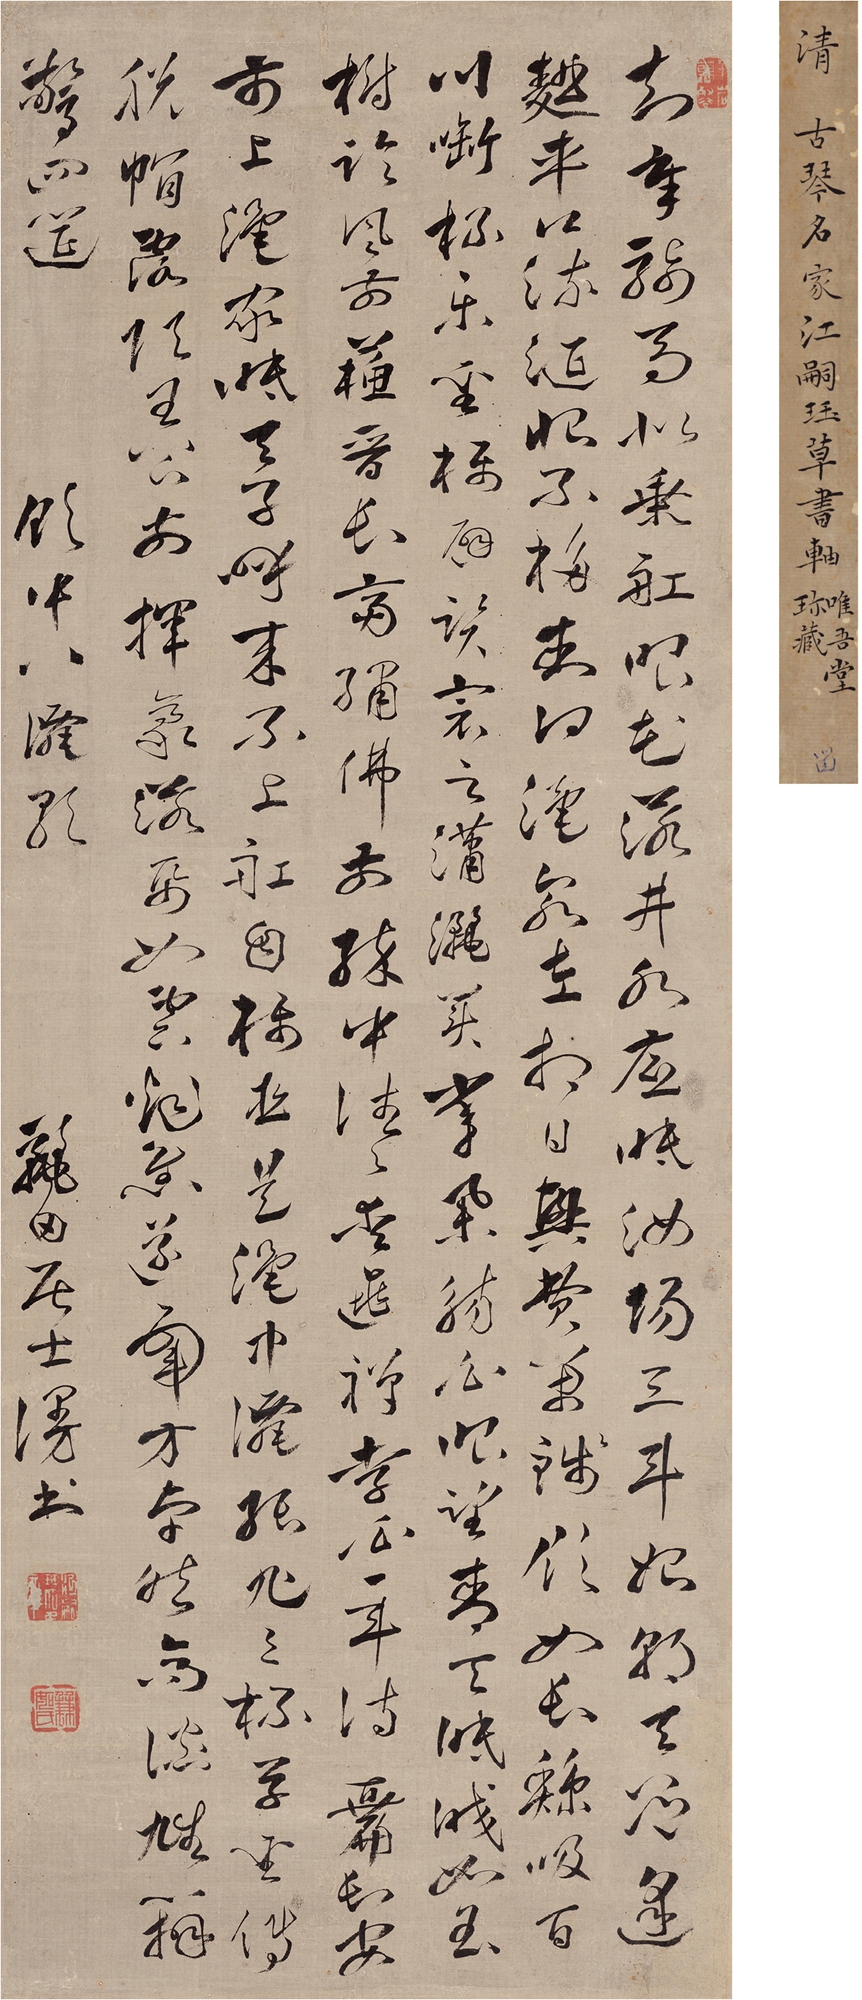 知章騎馬似乘舡眼花落井水底眠汝陽三斗始朝天道逢
麴車口流涎恨不移封向酒泉左相日興費萬錢飲如長鯨吸百
川銜杯樂聖稱避賢宗之瀟灑美少年舉觴白眼望青天皎如玉
樹臨風前蘇晉長齋繡佛前醉中往往愛逃禪李白一斗詩百篇長安
市上酒家眠天子呼來不上舡自稱臣是酒中僊張旭三杯草聖傳
脫帽露頂王公前揮毫落紙如雲煙焦遂五斗方卓然高談雄辯
驚四筵
飲中八僊歌
麗田居士漫書
清 古琴名家江嗣珏草書軸
唯吾堂
珍藏